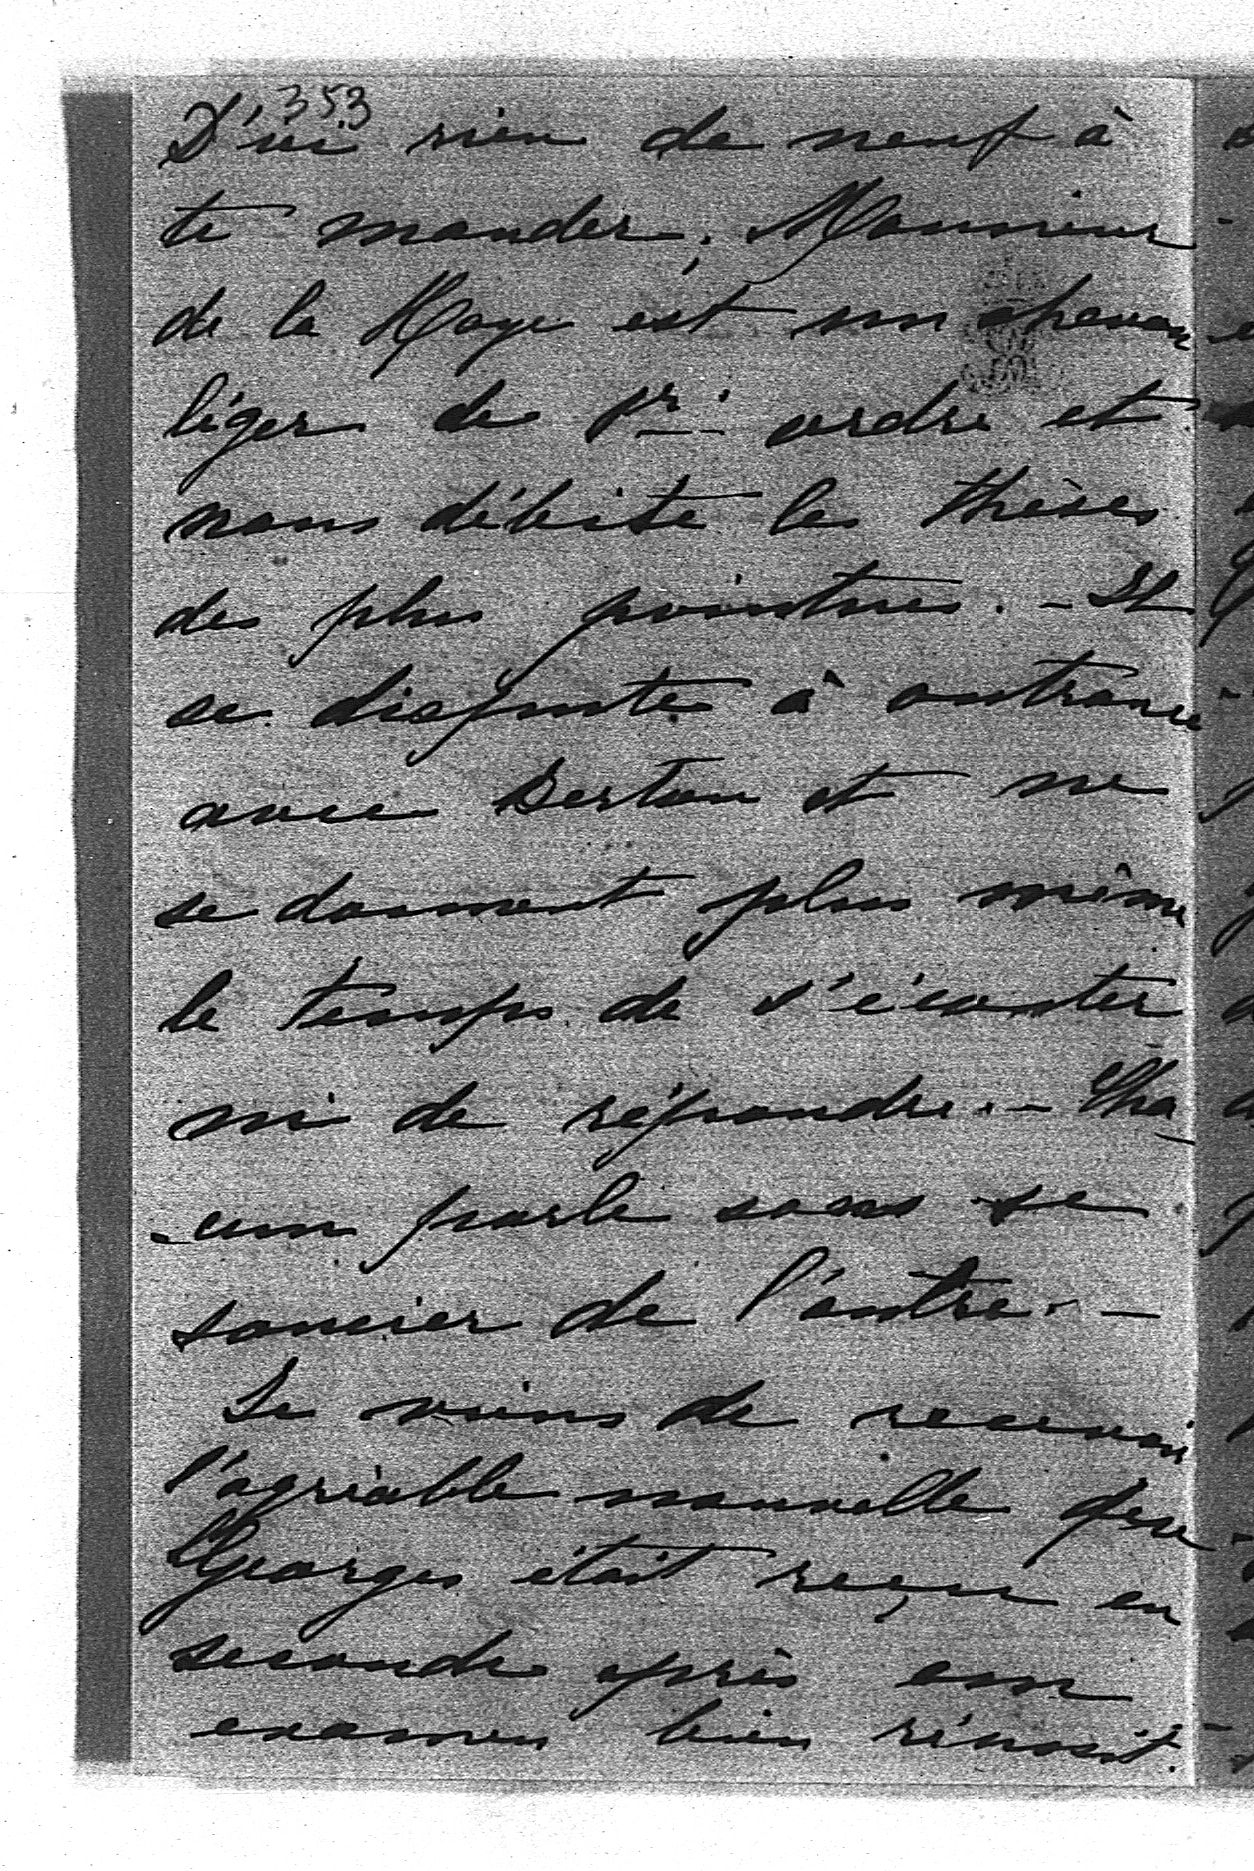 353
D'ici rien de neuf à
te mander. Monsieur
de la Haye est un chevau
léger de pr. ordre et
nous débite les thèses
des plus pointues. - Il
se dispute à outrance
avec Bertou et ne
se donnent plus même
le temps de s'écouter
ni de répondre. - Cha
-cun parle sans se
soucier de l'autre. -
Je viens de recevoir
l'agréable nouvelle que
Georges était reçu en
seconde après un
examen bien réussit.